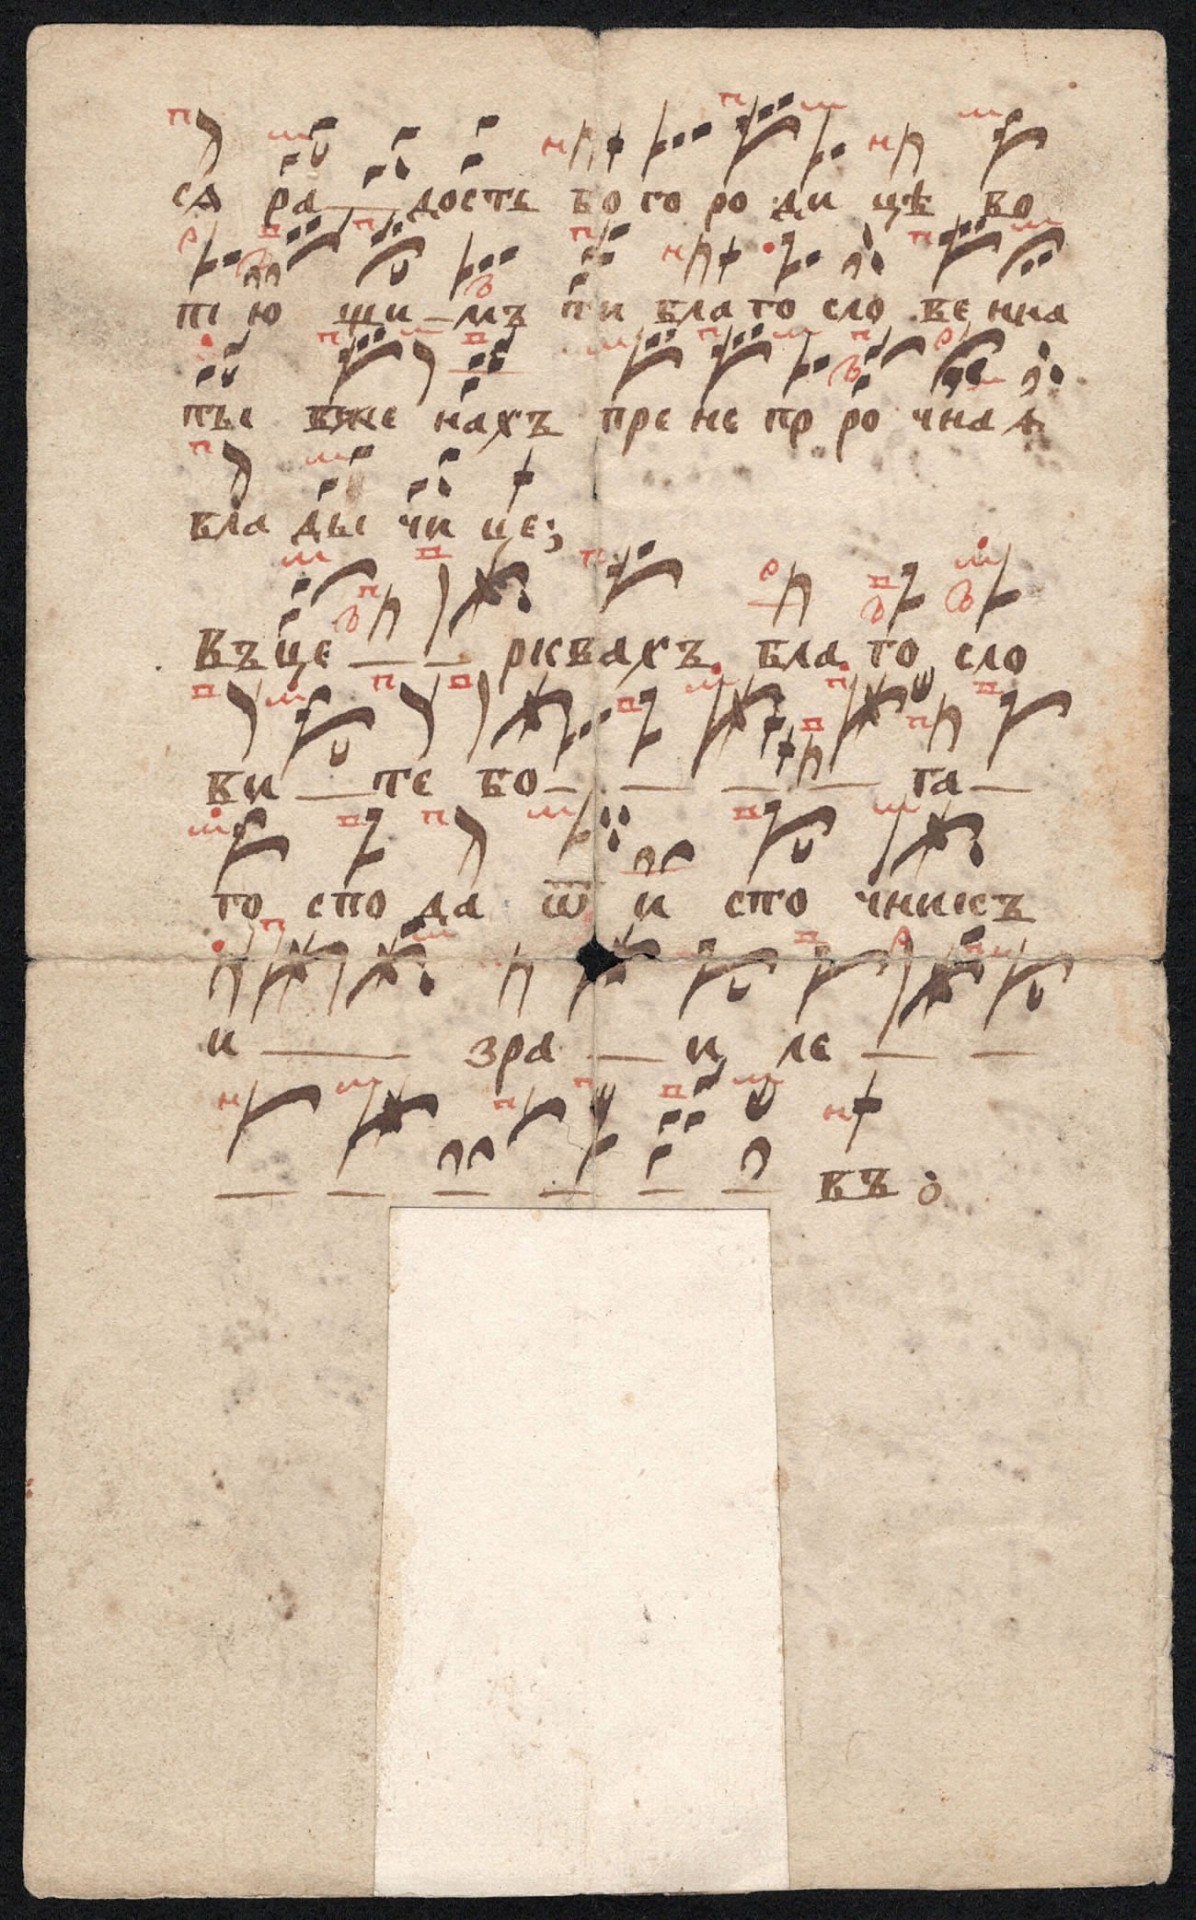 сѧ ра — дость бо го ро ди цѣ во
пї ю щи — мъ ти бла го сло ве нна
ты вже нахъ пре не пр ро чна ѧ
вла ды чи це;
Въ це — — рквахъ бла го сло
ви — те бо — — — — га —
го спо да ѿ и сто чникъ
и — зра — и ле — —
— — — — — — въ :